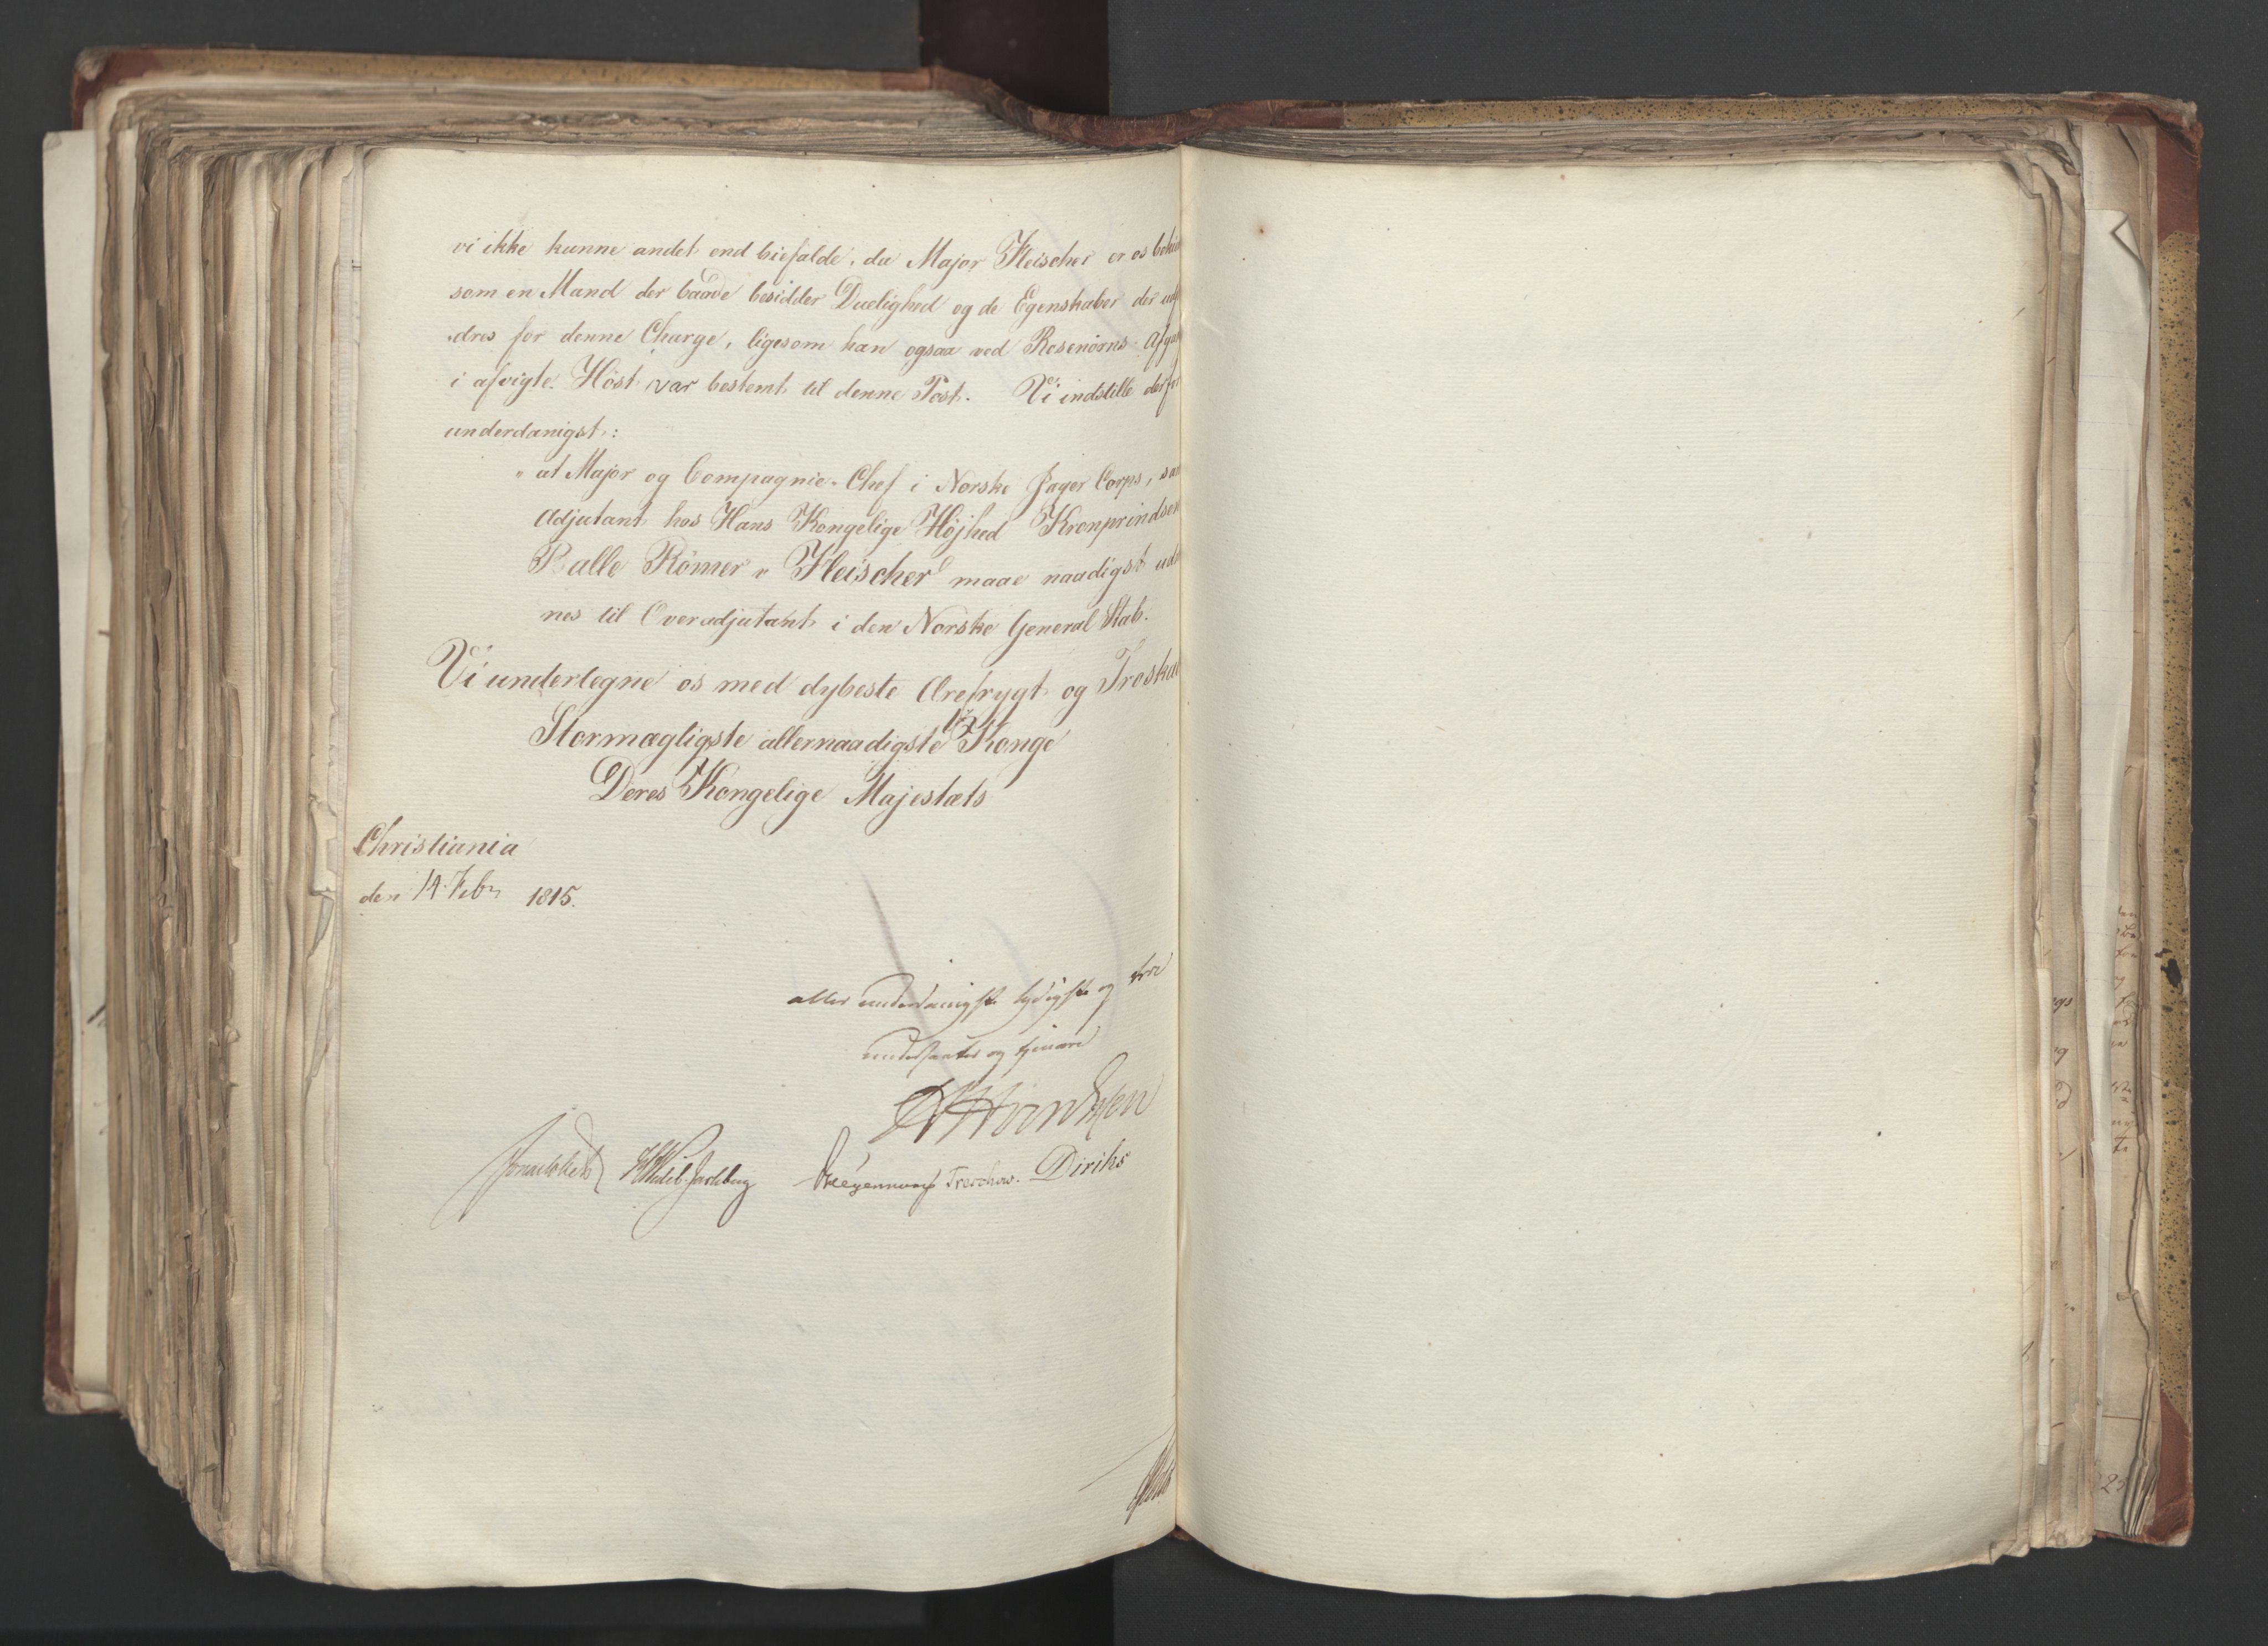 vi ikke kunne andet end biefalde, da Major Fleischer er os bekie
som en Mand der baade besidder Duelighed og de Egenskaber der udf
dres for denne Charge, ligesom han ogsaa ved Rosenörns Afga
i afvigte Höst var bestemt til denne Post. Vi indstille derfor
underdanigst:
" at Major og Compagnie-Chef i Norske Jager Corps, sa
Adjutant hos Hans Kongelige Højhed Kronprindsen
Balle Römer v Fleischer maae naadigst ud
nes til Overadjutant i den Norske General Stab.
Vi undertegne os med dybeste Ærefrygt og Troskab
Stormægtigste allernaadigste Konge
Deres Kongelige Majestæts
Christiania
den 14 Febr 1815.
aller underdanigste lydigste og troe
undersaatter og tjenere
Sommerhielm HWedel-Jarlsberg Hegermann Treschow. Diriks